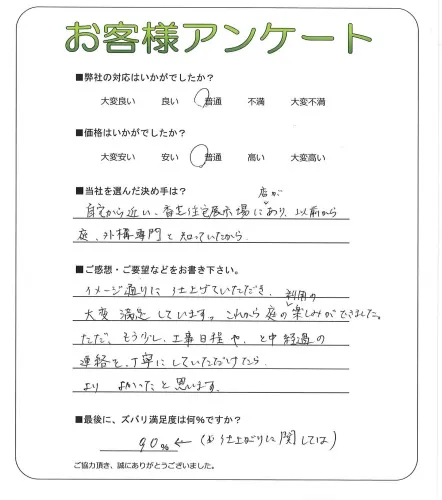 お客様アンケート
■弊社の対応はいかがでしたか?
大変良い 良い 普通 不満 大変不満
■価格はいかがでしたか?
大変安い 安い 普通 高い 大変高い
■当社を選んだ決め手は?
店が
自宅から近い、香芝住宅展示場にあり、以前から
庭、外構専門と知っていたから
■ご感想・ご要望などをお書き下さい。
イメージ通りに仕上げていただき、
利用の
大変満足しています。これから庭の楽しみができました。
ただ、もう少し、工事日程や、と中経過の
連絡を、丁寧にしていただけたら
より よかったと思います。
■最後に、ズバリ満足度は何%ですか?
90% ← (お仕上がりに関しては)
ご協力頂き、誠にありがとうございました。